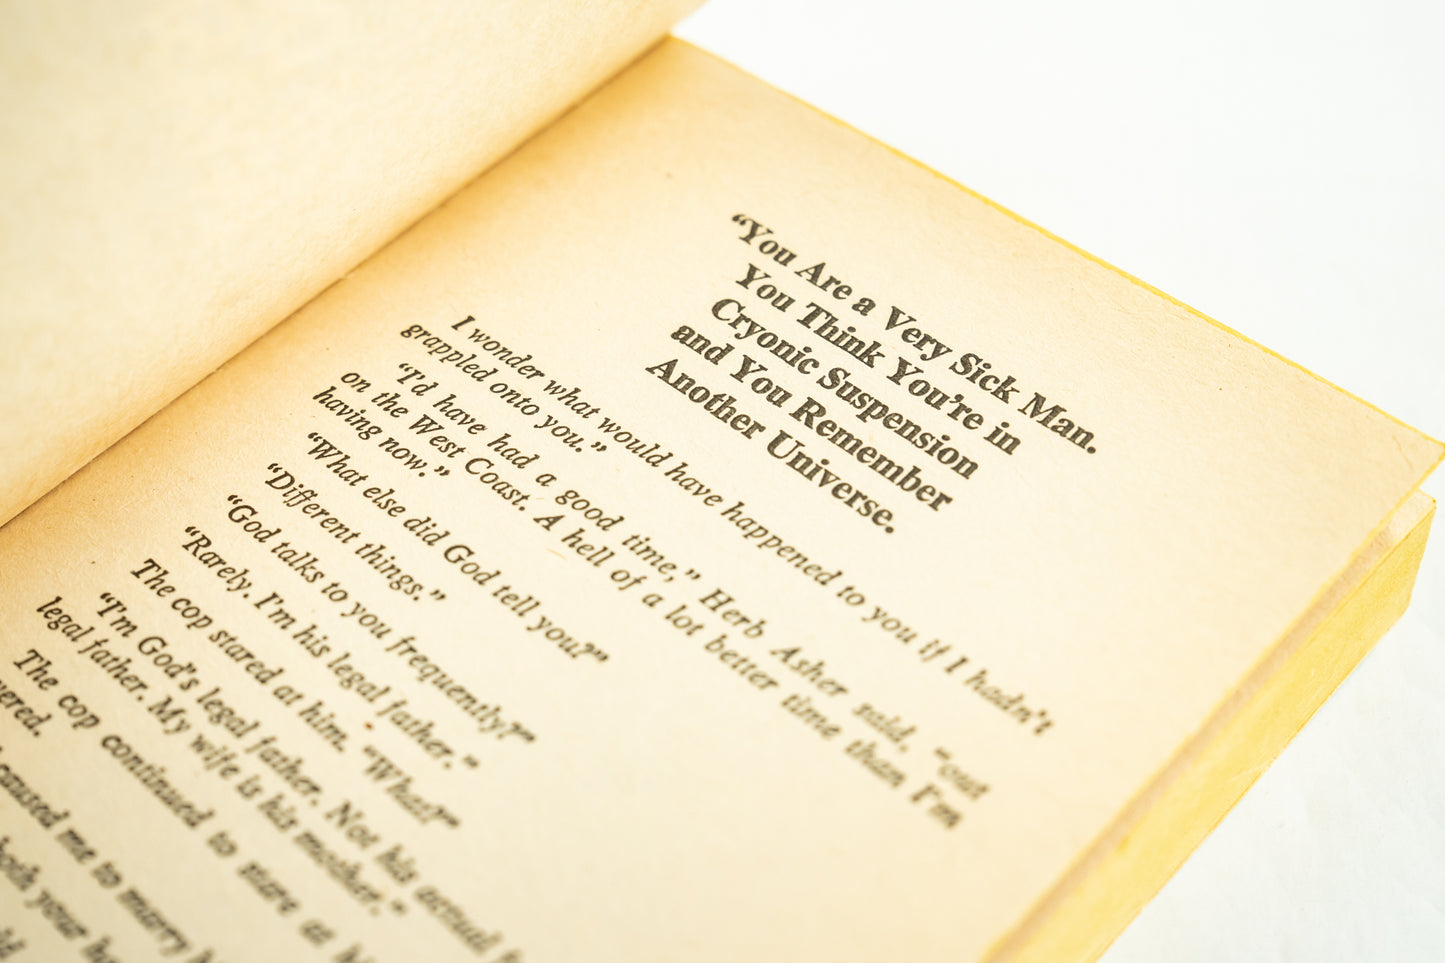 “You Are a Very Sick Man.
You Think You’re in
Cryonic Suspension
and You Remember
Another Universe.
I wonder what would have happened to you if I hadn’t
grappled onto you.”
“I’d have had a good time,” Herb Asher said, “out
on the West Coast. A hell of a lot better time than I’m
having now.”
“What else did God tell you?”
“Different things.”
“God talks to you frequently?”
“Rarely. I’m his legal father.”
The cop stared at him. “What?”
“I’m God’s legal father. Not his actual
legal father. My wife is his mother.”
The cop continued to stare at
caused me to marry
both your